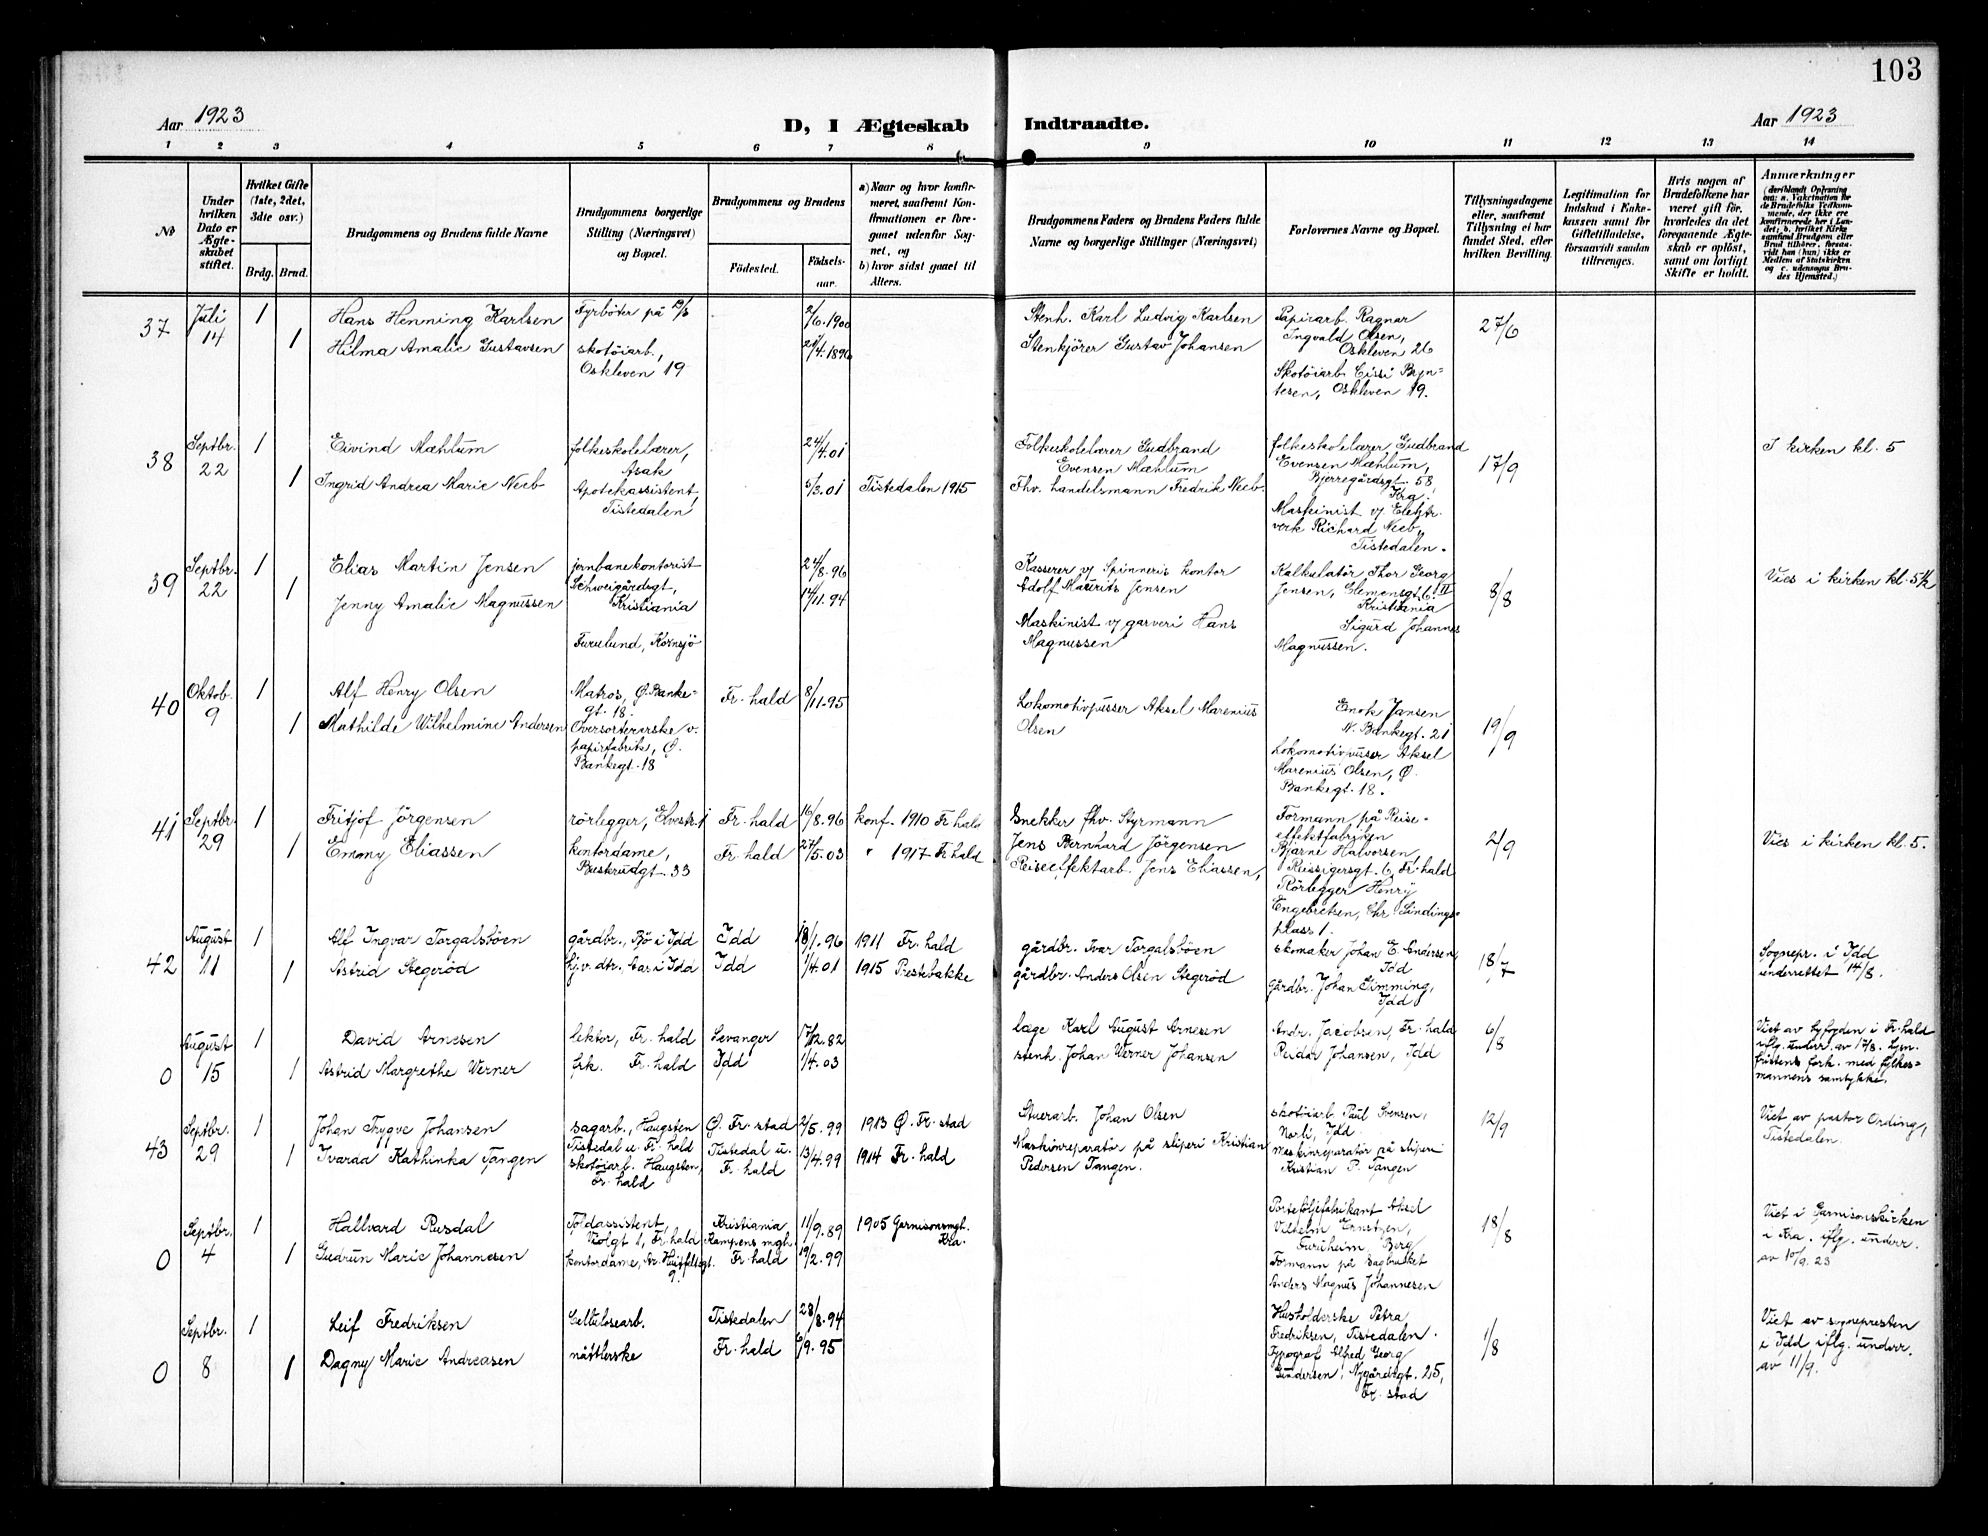 103
Aar 1923
D, I Ægteskab Indtraadte.
Aar 1923
1 2 3 4 5 6 7 8 9 10 11 12 13 14
No
Under hvilken Dato er Ægteskabet stiftet.
Hvilket Gifte (1ste, 2det, 3die osv.)
Brdg. Brud.
Brudgommens og Brudens fulde Navne
Brudgommens borgerlige Stilling (Næringsvei) og Bopæl.
Brudgommens og Brudens
Födested. Födselsaar.
a) Naar og hvor konfirmeret, saafremt Konfirmationen er foregaaet udenfor Sognet, og
b) hvor sidst gaaet til Alters.
Brudgommens Faders og Brudens Faders fulde Navne og borgerlige Stillinger (Næringsvei)
Forlovernes Navne og Bopæl.
Tillysningsdagene eller, saafremt Tillysning ei har fundet Sted, efter hvilken Bevilling.
Legitimation for Indskud i Enkekassen samt for Giftetilladelse, forsaavidt saadan tiltrænges.
Hvis nogen af Brudefolkene har været gift før, hvorledes da det foregaaende Ægteskab er oplöst, samt om lovligt Skifte er holdt.
Anmærkninger
(deriblandt Oplysning om: a. Vakcination for de Brudefolks Vedkommende, der ikke ere konfirmerede her i Landet; b. hvilket Kirkesamfund Brudgom eller Brud tilhörer, forsaavidt han (hun) ikke er Medlem af Statskirken og c. udensogns Brudes Hjemsted.)
37 Juli 14 1 Hans Henning Karlsen Fyrbøter på D/S 2/6.1900 Stenh. Karl Ludvig Karlsen Papirarb. Ragnar Ingvald Olsen, Oskleven 26 27/6
1 Hilma Amalie Gustavsen skotøiarb., Oskleven 19 /4.1896 Stenkjører Gustav Johansen Skotøiarb. Cissi Bryntesen, Oskleven 19.
38 Septbr. 22 1 Eivind Mæhlum folkeskolelærer, Asak 24/4.01 Folkeskolelærer Gudbrand Evensen Mæhlum folkeskolelærer Gudbrand Evensen Mæhlum, Bjerregårdsgt. 58, Kra. 17/9 I kirken kl. 5
1 Ingrid Andrea Marie Neeb Apotekassistent, Tistedalen 6/3.01 Tistedalen 1915 Fhv. handelsmann Fredrik Neeb. Maskinist v/ Elektr. verk Richard Neeb, Tistedalen.
39 Septbr. 22 1 Elias Martin Jensen jernbanekontorist Schweigårdsgt, Kristiania 24/8.96 Kasserer v/ Spinneris kontor Adolf Maurits Jensen Kalkulatør Thor Georg Jensen, Clemensgt. 6 II Kristiania 8/8 Vies i kirken kl. 5½
1 Jenny Amalie Magnussen Furulund, Kornsjø 17/11.94 Maskinist v/ garveri Hans Magnussen Sigurd Johannes Magnussen.
40 Oktob. 9 1 Alf Henry Olsen Matros, Ø. Bankegt. 18. Fr.hald 8/11.95 Lokomotivpusser Aksel Marenius Olsen Enok Jansen N. Bankegt. 21 19/9
1 Mathilde Wilhelmine Andersen Oversorterarske v. papirfabrik, Ø. Bankegt. 18 Lokomotivpusser Aksel Marenius Olsen, Ø. Bankegt. 18.
41 Septbr. 29 1 Fritjof Jörgensen rörlegger, Elvestr. 1 Fr.hald 16/8.96 konf. 1910 Fr hald Snekker fhv. Styrmann Jens Bernhard Jörgensen Formann på Reiseeffektfabriken Bjarne Halvorsen, Reissigersgt. 6, Fr.hald 2/9 Vies i kirken kl. 5.
1 Emmy Eliassen kontordame, Buskrudgt. 33 Fr.hald 27/5.03 " 1917 Fr hald Reiseeffektarb. Jens Eliassen, Rörlegger Henry Engebretsen, Chr. Sindings plass 1.
42 August 11 1 Alf Ingvar Torgalsböen gårdbr., Bö i Idd Idd 18/1.96 1911 Fr. hald gårdbr. Ivar Torgalsböen skomaker Johan E. Andersen, Idd 18/7 Sognepr. i Idd underrettet 14/8.
1 Astrid Stegerød hj.v. dtr. Aar i Idd Idd 1/4.01 1915 Prestebakke gårdbr. Anders Olsen Stegerød gårdbr. Johan Simming, Idd
0 August 15 1 David Arnesen lektor, Fr. hald Levanger 17/12.82 læge Karl August Arnesen Andr. Jacobsen, Fr. hald 6/8 Viet av byfogden i Fr.hald iflg. underr. av 17/8. Lysn. fristens fork. med fylkesmannens samtykke.
1 Astrid Margrethe Werner frk. Fr. hald Idd 1/4.03 stenh. Johan Werner Johansen Peider Johansen, Idd
43 Septbr. 29 1 Johan Trygve Johansen sagarb., Haugsten Tistedal u. Fr. hald Ø. Fr. stad 2/5.99 1913 Ø. Fr. stad Stuerarb. Johan Olsen skotøiarb. Paul Svensen, Norli, Idd 12/9 Viet av pastor Ording, Tistedalen.
1 Ivaraa Kathinka Tangen skotøiarb. Haugsten, Fr. hald Tistedal u. Fr. hald 13/4.99 1914 Fr. hald Maskinreparatör på sliperi Kristian Pedersen Tangen. maskinreparatör på sliperi Kristian P. Tangen
0 Septbr. 4 1 Hallvard Rusdal Toldassistent, Violgt 1, Fr.hald Kristiania Kampens mgh. 11/9.89 1905 Garnisonsmgt. Kra. Porteføljefabrikant Aksel Vilhelm Ernstzen, Furuheim, Berg 18/8 Viet i Garnisonskirken i Kra. iflg. underr. av 10/9.23
1 Gudrun Marie Johannesen kontordame, Ar. Huitfeldtsgt. 9. Fr. hald 19/2.99 Formann på sagbruket Anders Magnus Johannesen
0 Septbr. 8 1 Leif Fredriksen Cellulosearb. Tistedalen 28/8.94 Husholderske Petra Fredriksen, Tistedalen. 1/8 Viet av sognepresten i Idd iflg. underr. av 11/9.
1 Dagny Marie Andreasen nåtlerske Fr.hald 6/9.95 Typograf Alfred Georg Gundersen, Nygårdsgt. 25, Fr. stad